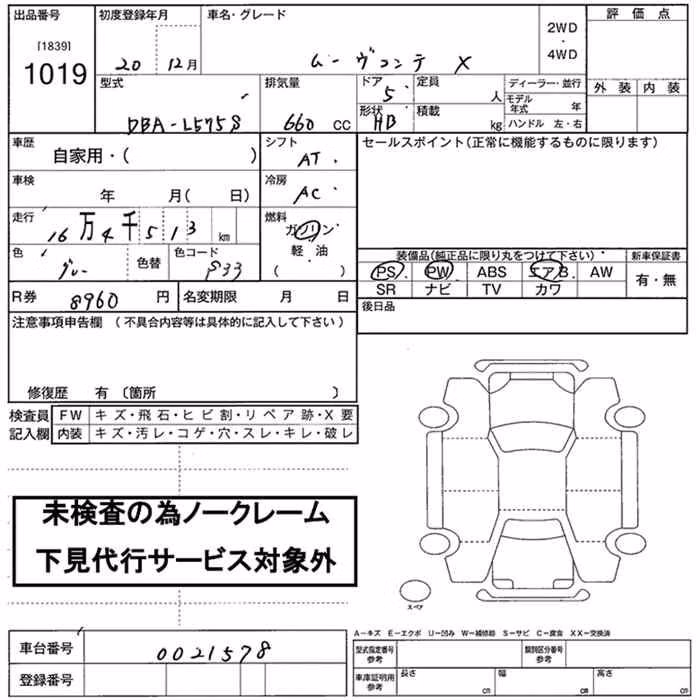 出品番号 初度登録年月 車名・グレード 2WD ・ 4WD 評価点
[1839]
1019 20 12月 ムーヴコンテ X
型式 排気量 ドア 5 定員 人 ディーラー・並行 外装 内装
DBA-L575S 660 CC 形状 HB 積載 kg モデル年式 年
ハンドル 左・右
車歴 自家用・( ) シフト AT セールスポイント(正常に機能するものに限ります)
車検 年 月( 日) 冷房 AC
走行 16万4千513 km 燃料 ガソリン
軽・油
( )
色 グレー 色替 色コード S33 装備品(純正品に限り丸をつけて下さい) 新車保証書
PS PW ABS エアB AW 有・無
SR ナビ TV カワ
R券 8960 円 名変期限 月 日 後日品
注意事項申告欄 (不具合内容等は具体的に記入して下さい)
修復歴 有 〔箇所 〕
検査員 FW キズ・飛石・ヒビ割・リペア跡・X要
記入欄 内装 キズ・汚レ・コゲ・穴・スレ・キレ・破レ
未検査の為ノークレーム
下見代行サービス対象外
スペア
A-キズ E-エクボ U-凹み W-補修跡 S-サビ C-腐食 XX-交換済
車台番号 0021578 型式指定番号 参考 類別区分番号 参考
登録番号 車庫証明用 参考 長さ cm 幅 cm 高さ cm